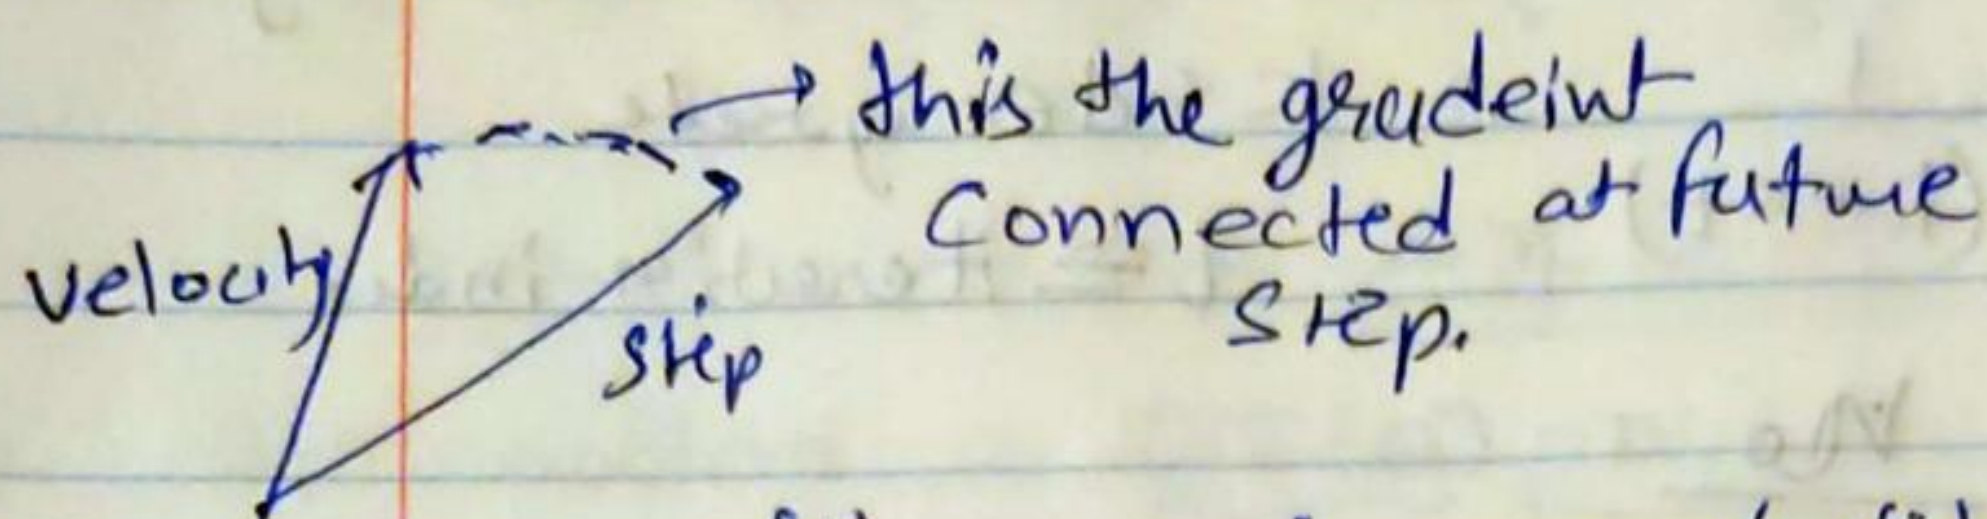 this the gradeint
Connected at future
step.
velocity
step